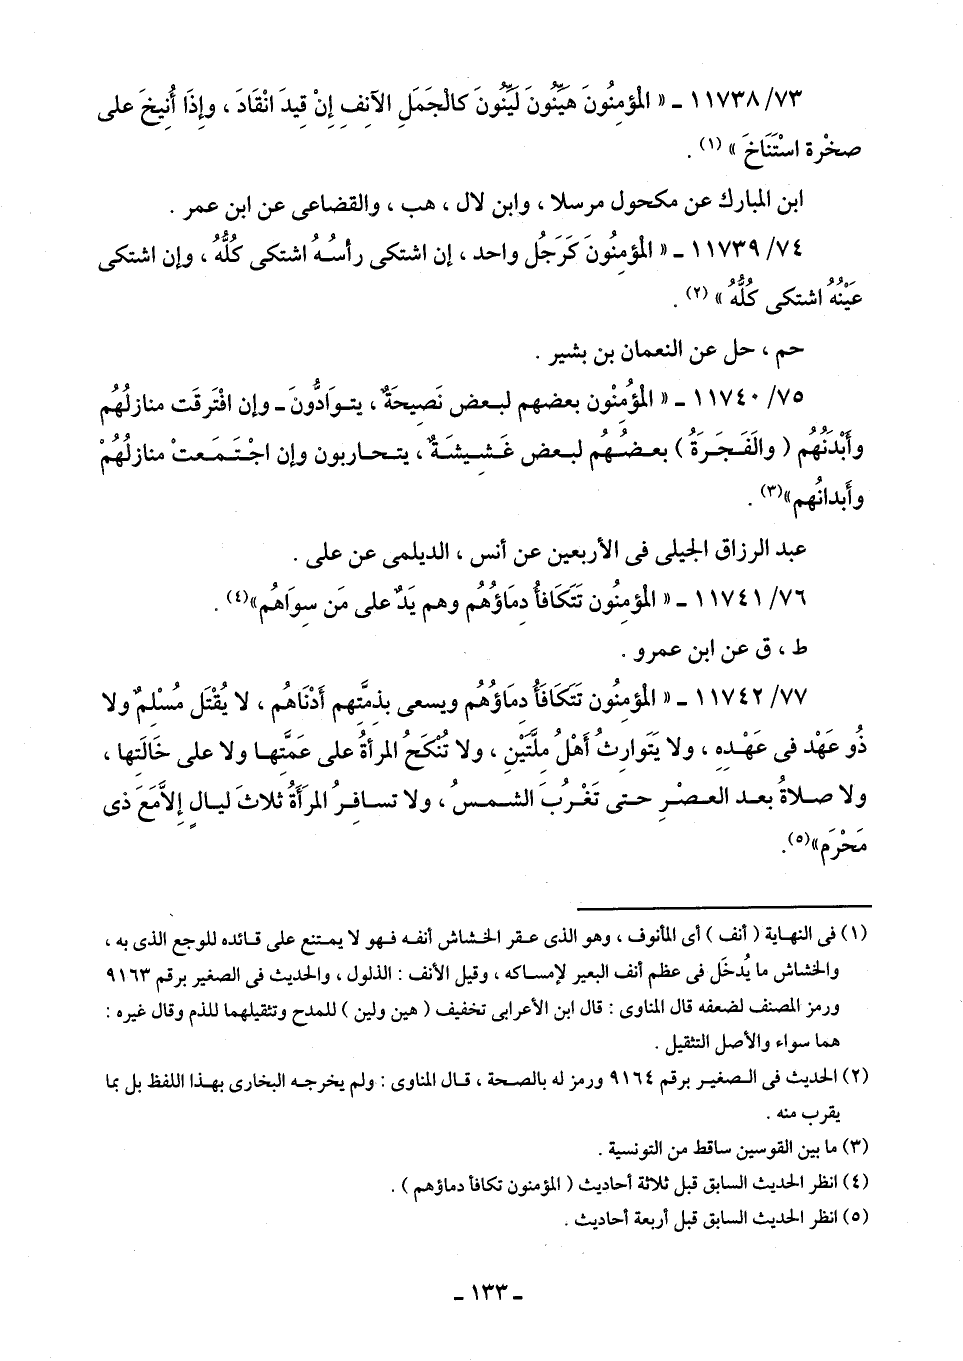 ١١٧٣٨/٧٣ ـ « المؤمِنُونَ هَيِّنُونَ لَيِّنُونَ كالْجَمَلِ الآنِفِ إِنْ قِيدَ انْقَادَ ، وإِذَا أُنِيخَ على
صخْرة اسْتَنَاخَ » (١) .
ابن المبارك عن مكحول مرسلا ، وابن لال ، هب ، والقضاعى عن ابن عمر .
١١٧٣٩/٧٤ ـ « المؤمِنُونَ كَرَجُل واحد ، إن اشتكى رأسُهُ اشتكى كُلُّهُ ، وإن اشتكى
عَيْنُهُ اشتكى كُلُّهُ » (٢) .
حم ، حل عن النعمان بن بشير .
١١٧٤٠/٧٥ ـ « المؤمِنُون بعضهم لبعض نَصِيحَةٌ ، يتوَادُّونَ ـ وإن افْتَرقَت منازلُهُم
وأَبْدَنُهُم ( والَفَجَرَةُ ) بعضُهُم لبعض غَشِيشَةٌ ، يتحاربون وإن اجْتَمَعتْ منازلُهُمْ
وأَبدانُهم»(٣) .
عبد الرزاق الجيلى فى الأربعين عن أنس ، الديلمى عن على .
١١٧٤١/٧٦ ـ « المؤمِنُون تَتَكَافأُ دِماَؤُهُم وهم يَدٌ على مَن سِوَاهُم»(٤) .
ط ، ق عن ابن عمرو .
١١٧٤٢/٧٧ ـ « المؤمِنُون تَتَكَافَأُ دِماَؤُهُم ويسعى بذِمَّتِهم أَدْنَاهُم ، لا يُقْتَل مُسْلِمٌ ولا
ذُو عَهْد فى عَهْدِه ، ولا يَتَوارثُ أَهْلُ مِلَّتَيْنِ ، ولا تُنْكَحُ المرأةُ على عَمَّتِها ولا على خَالَتِها ،
ولا صلاةُ بعد العصْرِ حتى تَغْرُبَ الشمسُ ، ولا تسافرُ المرَأَةُ ثلاثَ ليالٍ إلاَّمَعَ ذى
مَحْرَم»(٥).
(١) فى النهاية ( أنف ) أى المأنوف ، وهو الذى عقر الخشاش أنفه فهو لا يمتنع على قائده للوجع الذى به ،
والخشاش ما يُدخَل فى عظم أنف البعير لإمساكه ، وقيل الأنف : الذلول ، والحديث فى الصغير برقم ٩١٦٣
ورمز المصنف لضعفه قال المناوى : قال ابن الأعرابى تخفيف ( هين ولين ) للمدح وتثقيلهما للذم وقال غيره :
هما سواء والأصل التثقيل .
(٢) الحديث فى الصغير برقم ٩١٦٤ ورمز له بالصحة ، قال المناوى : ولم يخرجه البخارى بهذا اللفظ بل بما
يقرب منه .
(٣) ما بين القوسين ساقط من التونسية .
(٤) انظر الحديث السابق قبل ثلاثة أحاديث ( المؤمنون تكافأ دماؤهم ) .
(٥) انظر الحديث السابق قبل أربعة أحاديث .
ـ ١٣٣ ـ